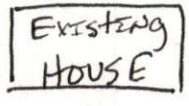 Existing
House